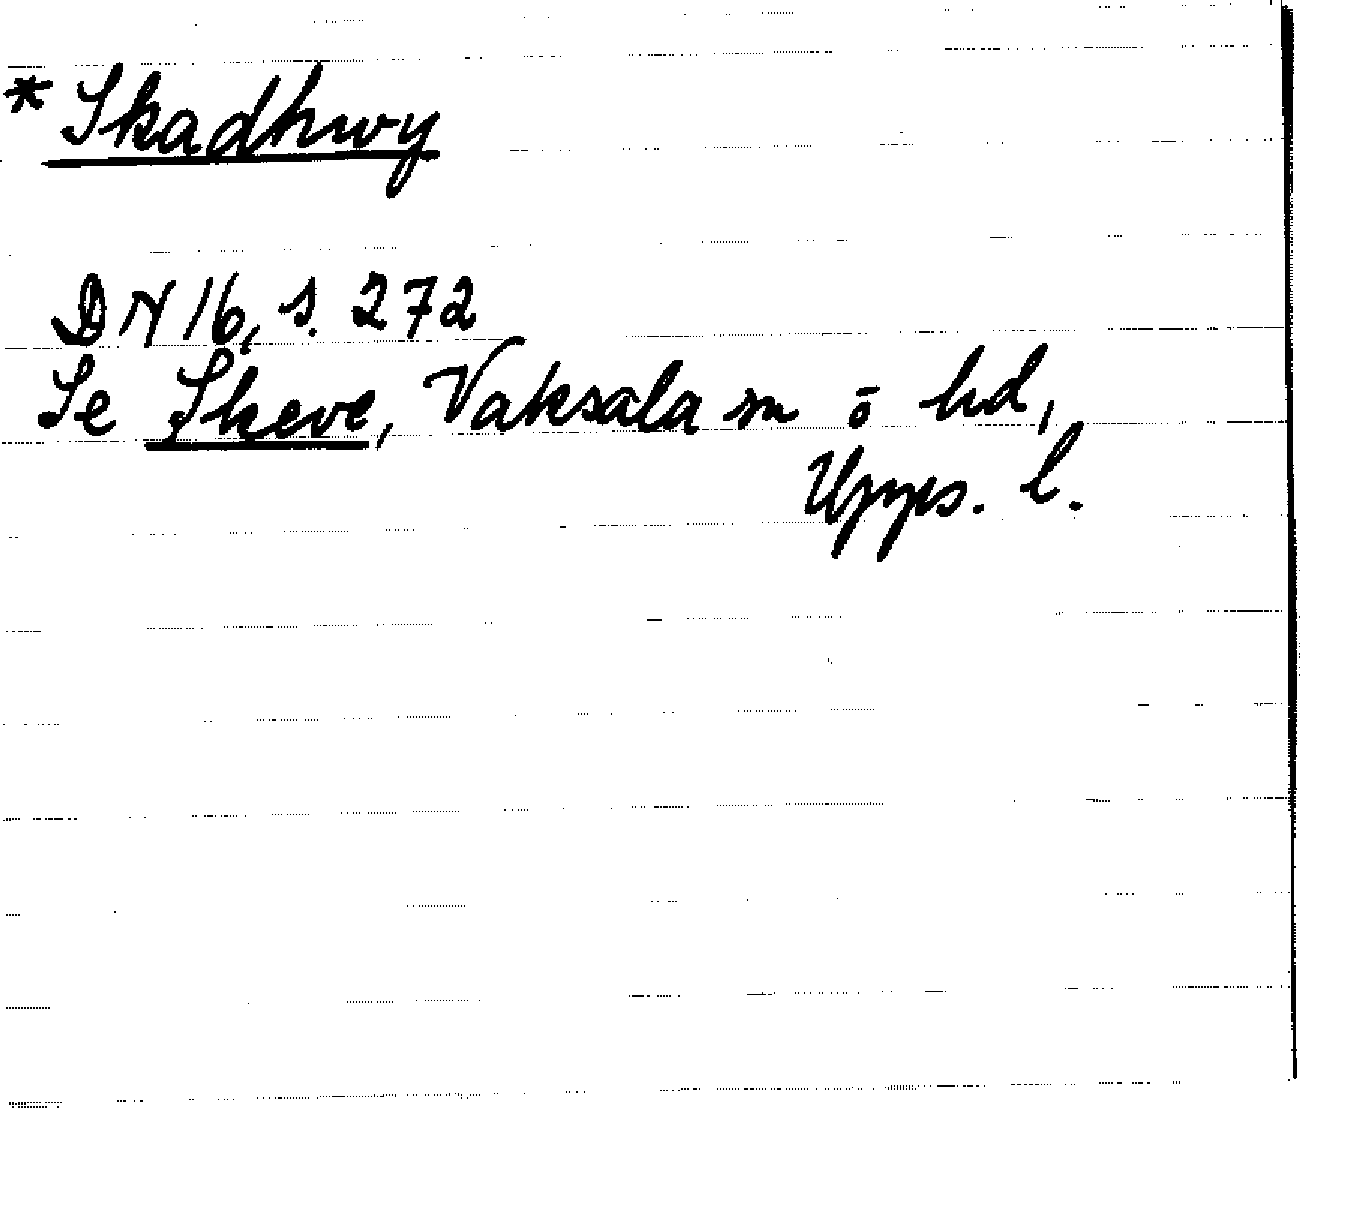 * Skadhwy
DN 16, s. 272
Se Skeve, Vaksala sn o hd,
Upps. l.